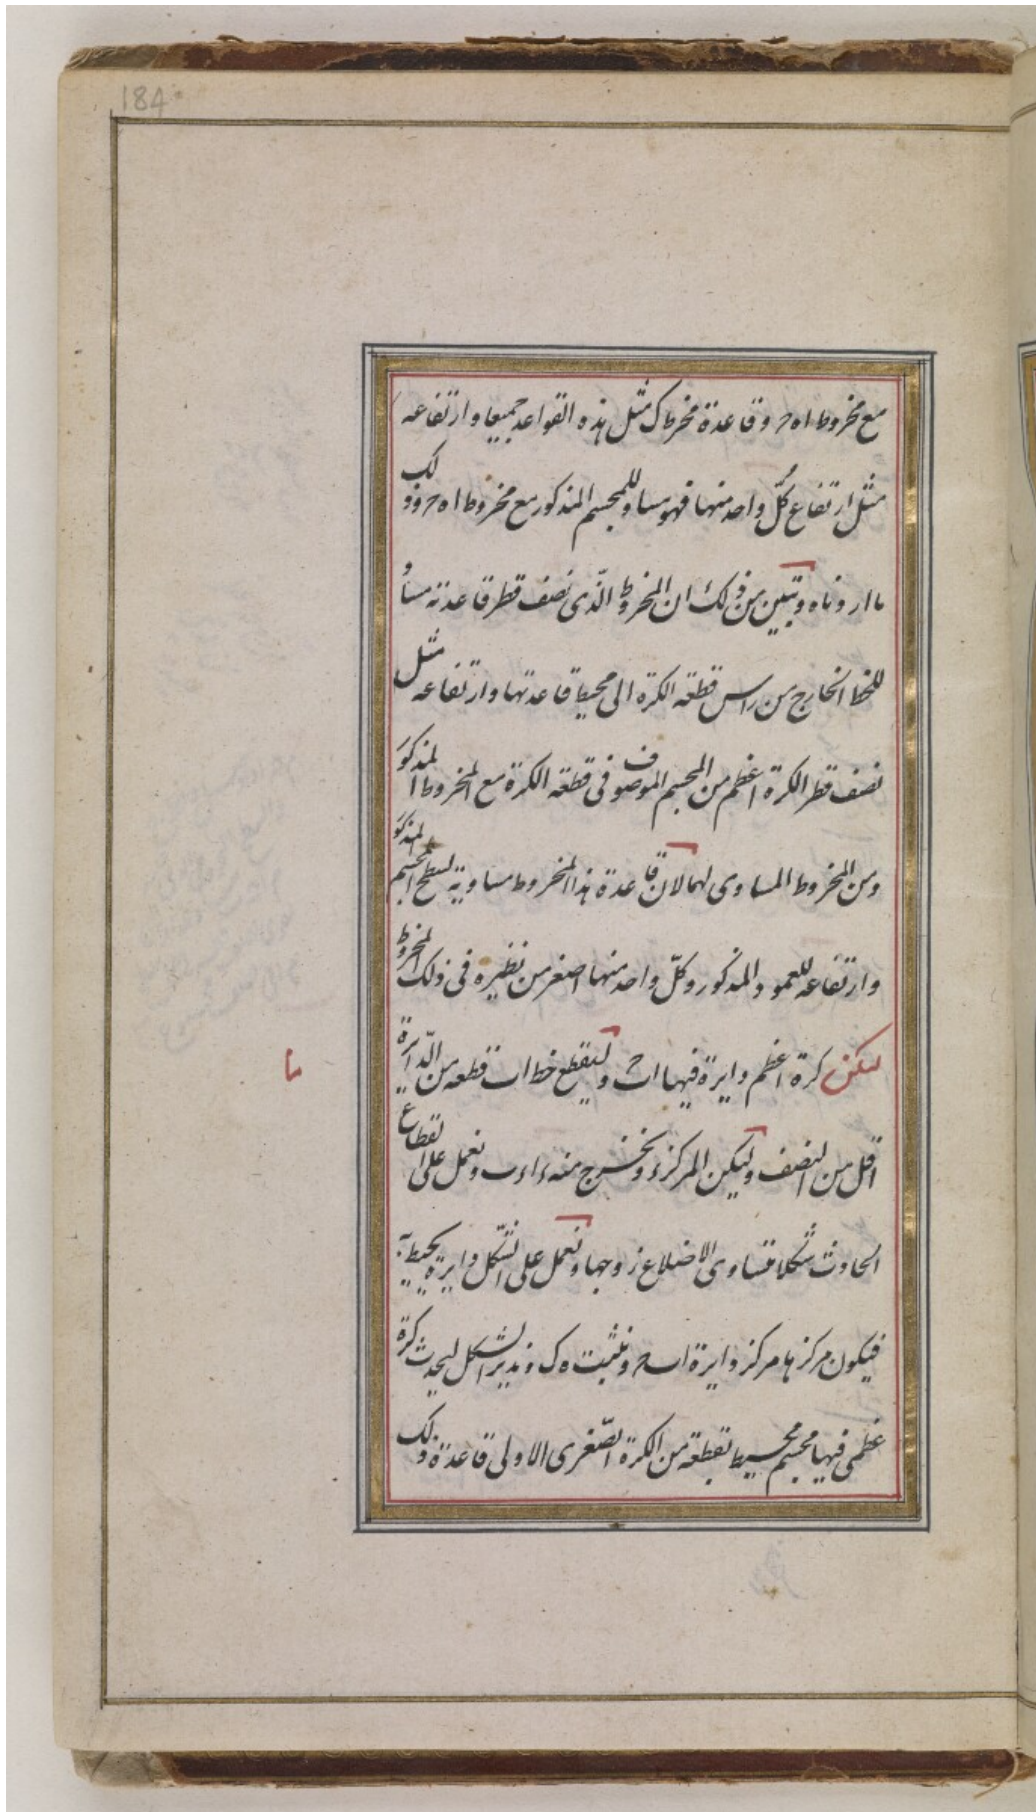 184
مع مخروط اه‍ح وقاعدة مخروط ك مثل هذه القواعد جميعا وارتفاعه
مثل ارتفاع كلّ واحد منها فهو مساو للمجسم المذكور مع مخروط اه‍ح وذلك
ما اردناه وتبين من ذلك ان المخروط الّذى نصف قطر قاعدته مساو
للخط الخارج من راس قطعة الكرة الى محيط قاعدتها وارتفاعه مثل
نصف قطر الكرة اعظم من المجسم الموصوف فى قطعة الكرة مع المخروط المذكور
ومن المخروط المساوى لهما لان قاعدة هذا المخروط مساوية لسطح المجسم المذكور
وارتفاعه للعمود المذكور وكلّ واحد منهما اصغر من نظيره فى ذلك المخروط
ليكن كرة اعظم دايرة فيها اب‍ح وليقطع خط اب قطعه من الدّايرة
ما
اقل من النصف وليكن المركز ء ونخرج منه ءا ءب ونعمل على القطاع
الحادث شكلا متساوى الاضلاع زوجها ونعمل على الشّكل دايرة يحيط به
فيكون مركزها مركز دايرة اب‍ح ونثبت ه‍ك وندير الشكل ليحدث كرة
عظمى فيها مجسم محيط بقطعة من الكرة الصّغرى الاولى قاعدة ذلك